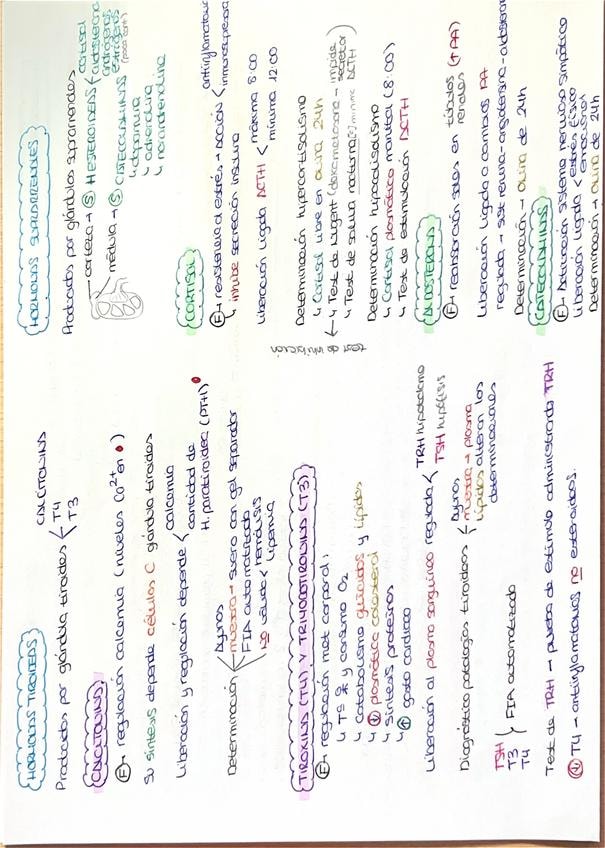 HORMONAS TIROIDEAS
Producidas por glándula tiroides < CALCITONINA
T4
T3
CALCITONINA
(F)→ regulación calcemia (niveles Ca2+ en •)
Su síntesis depende células C glándula tiroides
Liberación y regulación depende < calcemia
cantidad de
H. paratiroidea (PTH)•
Determinación
Ayunas
muestra → suero con gel separador
FIA automatizado
NO válido < hemólisis
lipemia
TIROXINA (T4) Y TRIYODOTIRONINA (T3)
(F)→ regulación met corporal:
↳ Tª y consumo O2
↳ Catabolismo glúcidos y lípidos
↳ (↓) plasmática colesterol
↳ Síntesis proteínas
↳ (↑) gasto cardiaco
Liberación al plasma sanguíneo regulada < TRH hipotálamo
TSH hipófisis
Diagnóstico patologías tiroideas < Ayunas
muestra → plasma
Lípidos alteran las
determinaciones
TSH
T3 } FIA automatizado
T4
Test de TRH → prueba de estímulo administrando TRH
(↓) T4 → antiinflamatorios NO esteroideos.
HORMONAS SUPRARRENALES
Producidas por glándulas suprarrenales
corteza → (S) H ESTEROIDEAS
cortisol
aldosterona
andrógenos
estrógenos
médula → (S) CATECOLAMINAS
↳ dopamina
↳ adrenalina
↳ noradrenalina
CORTISOL
(F)→ resistencia al estrés → acción < antiinflamatoria
inmunosupresora
↳ inhibe secreción insulina
Liberación ligada ACTH < máxima 8:00
mínima 12:00
Determinación hipercortisolismo
↳ Cortisol libre en orina 24h
↳ Test de Nugent (dexametasona → impide secreción ACTH)
↳ Test de saliva nocturna
test de inhibición
Determinación hipocortisolismo
↳ Cortisol plasmático matutital (8:00)
↳ Test de estimulación ACTH
ALDOSTERONA
(F)→ reabsorción sales en túbulos renales (↑PA)
Liberación ligada a cambios PA
regulada → sist renina-angiotensina-aldosterona
Determinación → orina de 24h
CATECOLAMINAS
(F)→ Activación sistema nervioso simpático
Liberación ligada < estrés físico
emociones
Determinación → orina de 24h